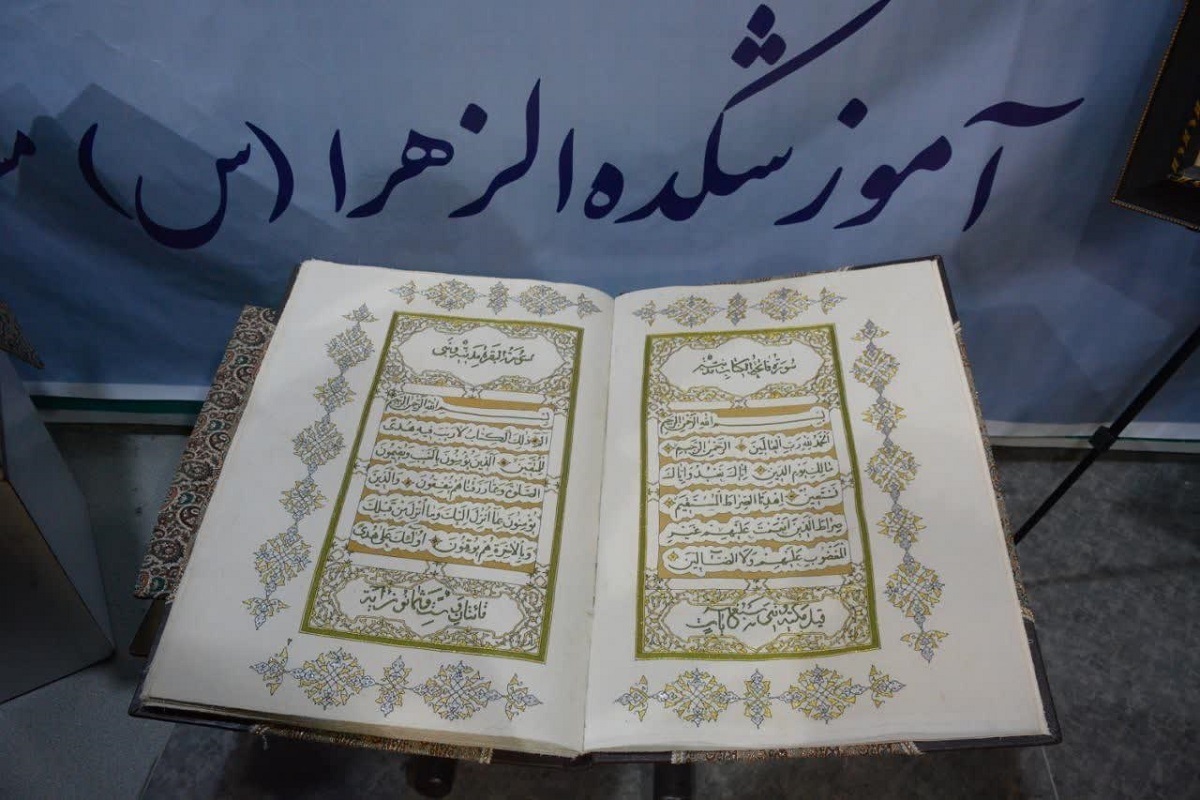 آموزشکده الزهرا (س)
سورة فاتحة الكتاب
بسم الله الرحمن الرحيم
الحمد لله رب العالمين الرحمن الرحيم
مالك يوم الدين اياك نعبد واياك
نستعين اهدنا الصراط المستقيم
صراط الذين انعمت عليهم غير
المغضوب عليهم ولا الضالين
سورة البقرة مدنية وهي
بسم الله الرحمن الرحيم
الم ذلك الكتاب لا ريب فيه هدى
للمتقين الذين يؤمنون بالغيب ويقيمون
الصلوة ومما رزقناهم ينفقون والذين
يؤمنون بما انزل اليك وما انزل من قبلك
وبالاخرة هم يوقنون اولئك على هدى
مائتان وست وثمانون آية